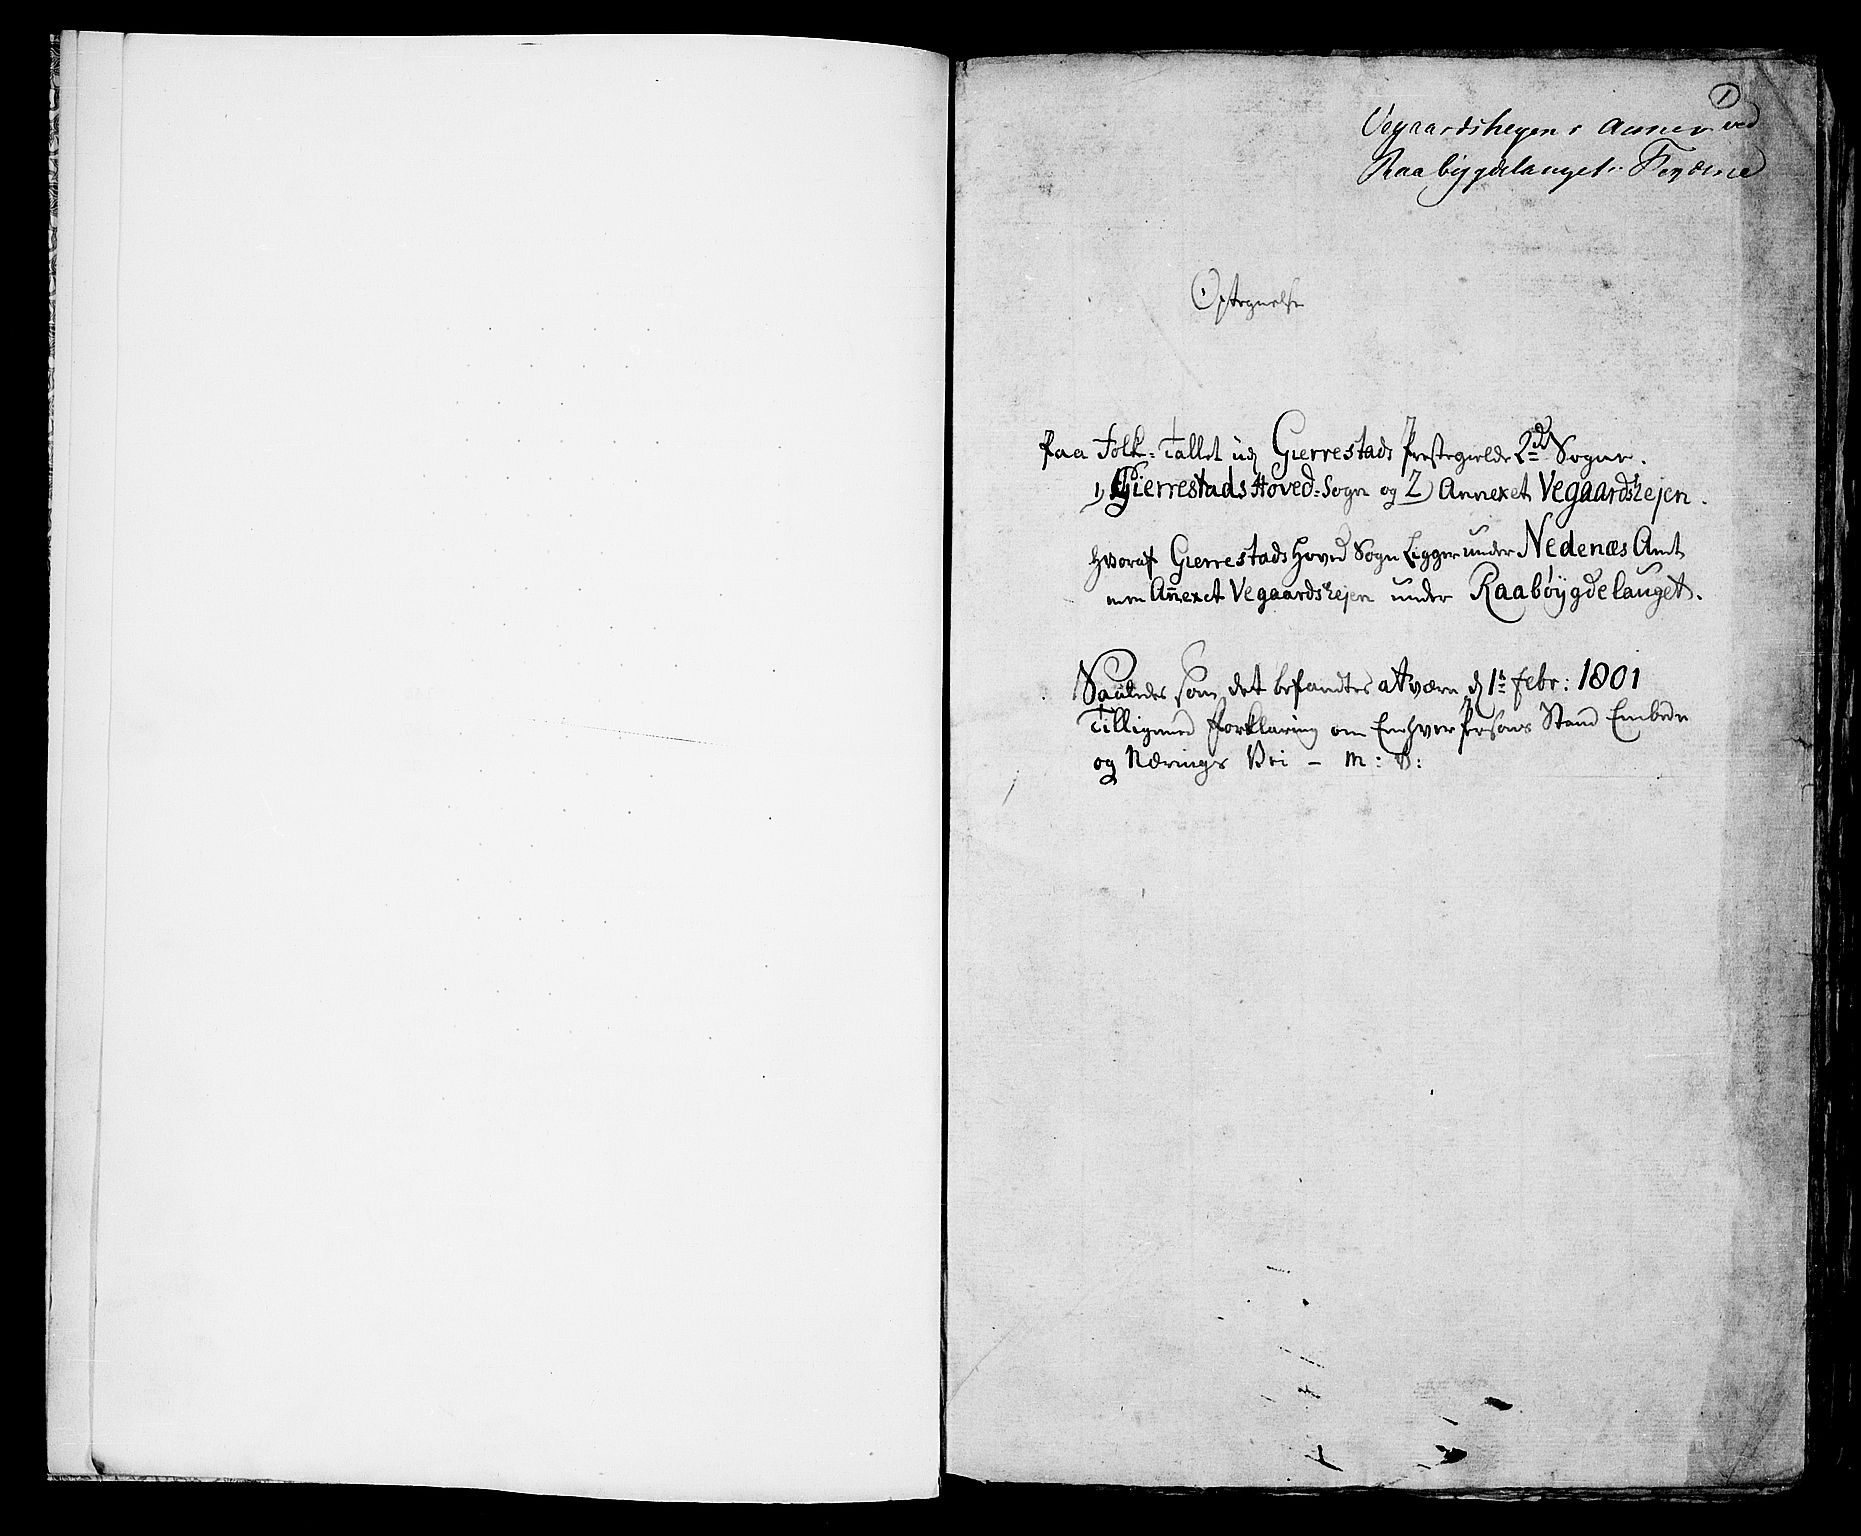 1
Vegaardsheyens Annex ved
Raabygdelauget
Optegnelse
paa Folk-Tallet udj Gierrestads Prestegielde 2de Sogne.
1, Gierrestads Hoved-Sogn og 2) Annexet Vegaardshejen.
hvoraf Gierrestads Hoved Sogn Ligger under Nedenæs Amt
men Añexet Vegaardshejen under Raabøÿgdelauget.
Saaledes som det befandtes at være d 1te febr: 1801
Tilligemed Forklaring om Enhver Persons Stand Embede
og Nærings Vei – m: v: